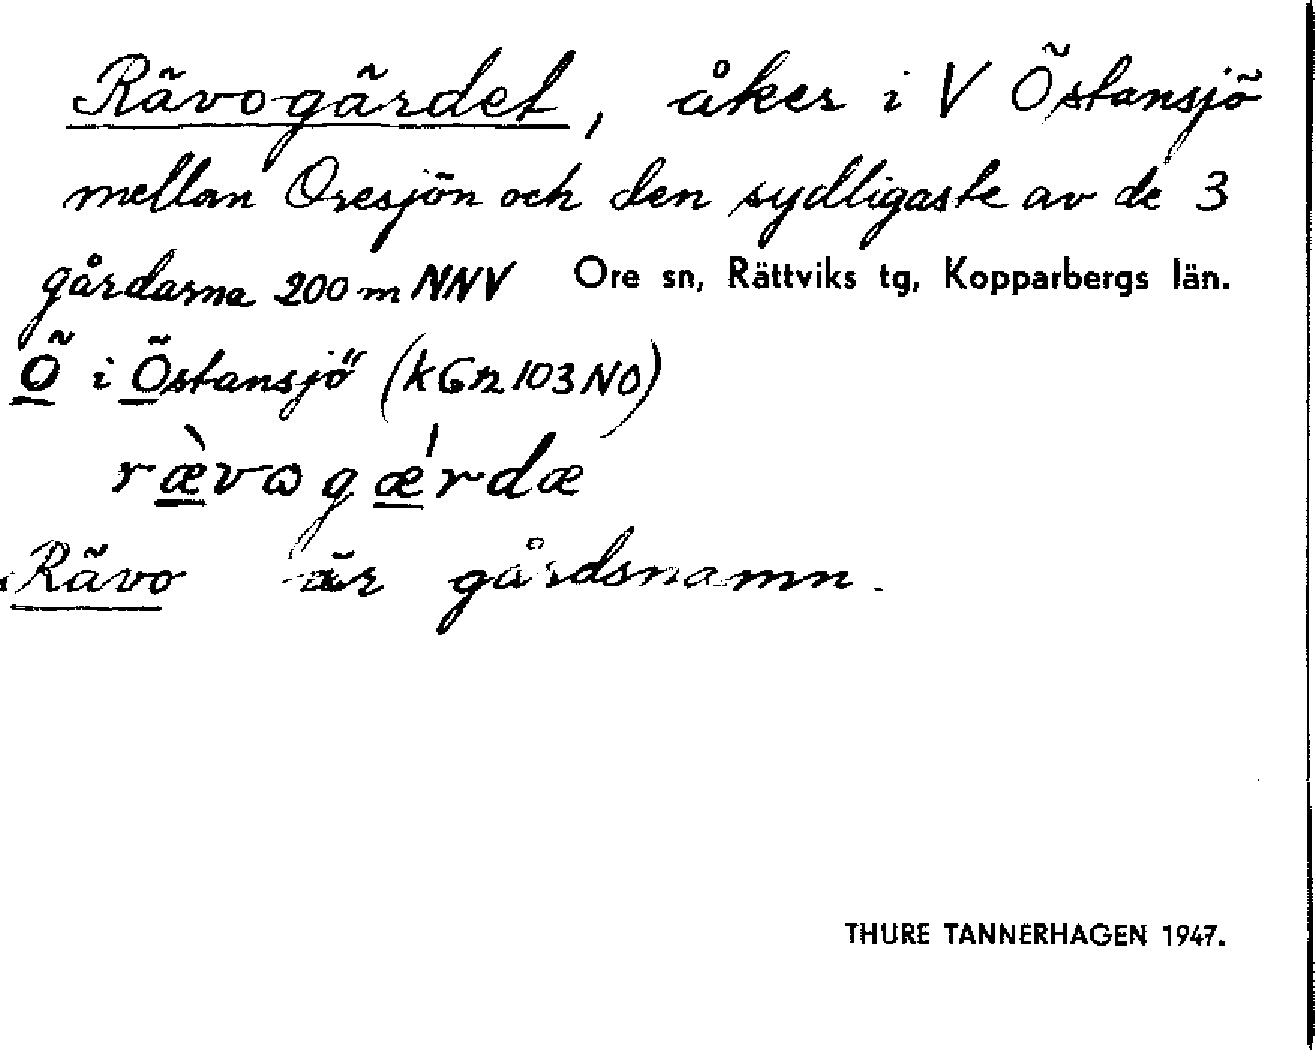 Rävogärdet, åker i V Östansjö
mellan Oresjön och den sydligaste av de 3
gårdarna 200 m NNV Ore sn, Rättviks tg, Kopparbergs län.
Ö i Östansjö (kGr 103 NO)
ræ̀vωgǽrdæ
Rävo är gårdsnamn.
THURE TANNERHAGEN 1947.